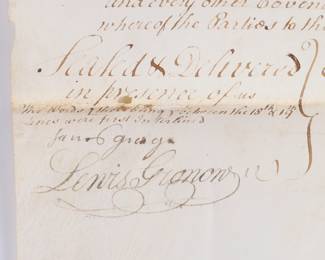 and every other Coven
whereof the Parties to th
Sealed & Delivered
in presence of us
The Words between the 18th & 19th
Lines were first Interlined
Lewis Gronow